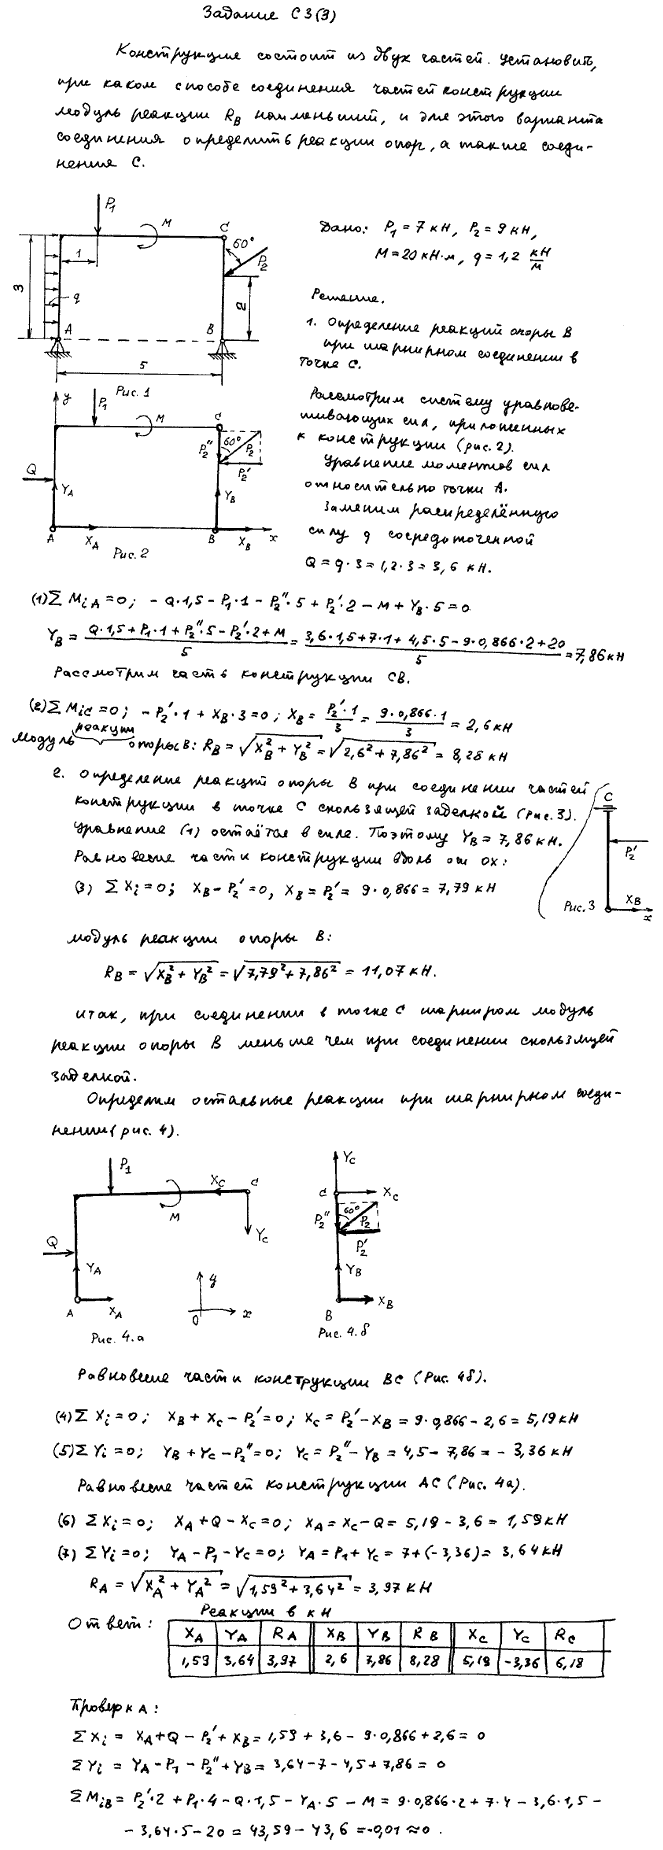 Задание С3(3)
Конструкция состоит из двух частей. Установить,
при каком способе соединения частей конструкции
модуль реакции R_B наименьший, и для этого варианта
соединения определить реакции опор, а также соеди-
нения С.
P₁
M
C
60°
P₂
1
3
q
2
A
B
5
Рис. 1
Дано: P₁ = 7 кН, P₂ = 9 кН,
M = 20 кН·м, q = 1,2 кН/м
Решение.
1. Определение реакций опоры В
при шарнирном соединении в
точке С.
Рассмотрим систему уравнове-
шивающих сил, приложенных
к конструкции (рис. 2).
Уравнение моментов сил
относительно точки А.
Заменим распределённую
силу q сосредоточенной
Q = q·3 = 1,2·3 = 3,6 кН.
y
P₁
M
C
P₂''
60°
P₂
P₂'
Q
Y_A
Y_B
A
X_A
B
X_B
x
Рис. 2
(1) Σ M_iA = 0; - Q·1,5 - P₁·1 - P₂''·5 + P₂'·2 - M + Y_B·5 = 0
Y_B = (Q·1,5 + P₁·1 + P₂''·5 - P₂'·2 + M)/5 = (3,6·1,5 + 7·1 + 4,5·5 - 9·0,866·2 + 20)/5 = 7,86 кН
Рассмотрим часть конструкции СВ.
(2) Σ M_iC = 0; - P₂'·1 + X_B·3 = 0; X_B = P₂'·1/3 = 9·0,866·1/3 = 2,6 кН
модуль реакции опоры В: R_B = √(X_B² + Y_B²) = √(2,6² + 7,86²) = 8,28 кН
2. Определение реакции опоры В при соединении частей
конструкции в точке С скользящей заделкой (рис. 3).
Уравнение (1) остаётся в силе. Поэтому Y_B = 7,86 кН.
Равновесие части конструкции вдоль оси ОХ:
(3) Σ X_i = 0; X_B - P₂' = 0, X_B = P₂' = 9·0,866 = 7,79 кН
C
P₂'
X_B
x
Рис. 3
модуль реакции опоры В:
R_B = √(X_B² + Y_B²) = √(7,79² + 7,86²) = 11,07 кН.
Итак, при соединении в точке С шарниром модуль
реакции опоры В меньше чем при соединении скользящей
заделкой.
Определим остальные реакции при шарнирном соеди-
нении (рис. 4).
P₁
X_C
C
M
Y_C
Q
Y_A
A
X_A
y
0
x
Рис. 4.а
Y_C
C
X_C
P₂''
60°
P₂
P₂'
Y_B
B
X_B
Рис. 4.б
Равновесие части конструкции ВС (Рис. 4б).
(4) Σ X_i = 0; X_B + X_C - P₂' = 0; X_C = P₂' - X_B = 9·0,866 - 2,6 = 5,19 кН
(5) Σ Y_i = 0; Y_B + Y_C - P₂'' = 0; Y_C = P₂'' - Y_B = 4,5 - 7,86 = - 3,36 кН
Равновесие частей конструкции АС (Рис. 4а).
(6) Σ X_i = 0; X_A + Q - X_C = 0; X_A = X_C - Q = 5,19 - 3,6 = 1,59 кН
(7) Σ Y_i = 0; Y_A - P₁ - Y_C = 0; Y_A = P₁ + Y_C = 7 + (-3,36) = 3,64 кН
R_A = √(X_A² + Y_A²) = √(1,59² + 3,64²) = 3,97 кН
Ответ: Реакции в кН
X_A Y_A R_A X_B Y_B R_B X_C Y_C R_C
1,59 3,64 3,97 2,6 7,86 8,28 5,19 -3,36 6,18
Проверка:
Σ X_i = X_A + Q - P₂' + X_B = 1,59 + 3,6 - 9·0,866 + 2,6 = 0
Σ Y_i = Y_A - P₁ - P₂'' + Y_B = 3,64 - 7 - 4,5 + 7,86 = 0
Σ M_iB = P₂'·2 + P₁·4 - Q·1,5 - Y_A·5 - M = 9·0,866·2 + 7·4 - 3,6·1,5 -
- 3,64·5 - 20 = 43,59 - 43,6 = -0,01 ≈ 0.